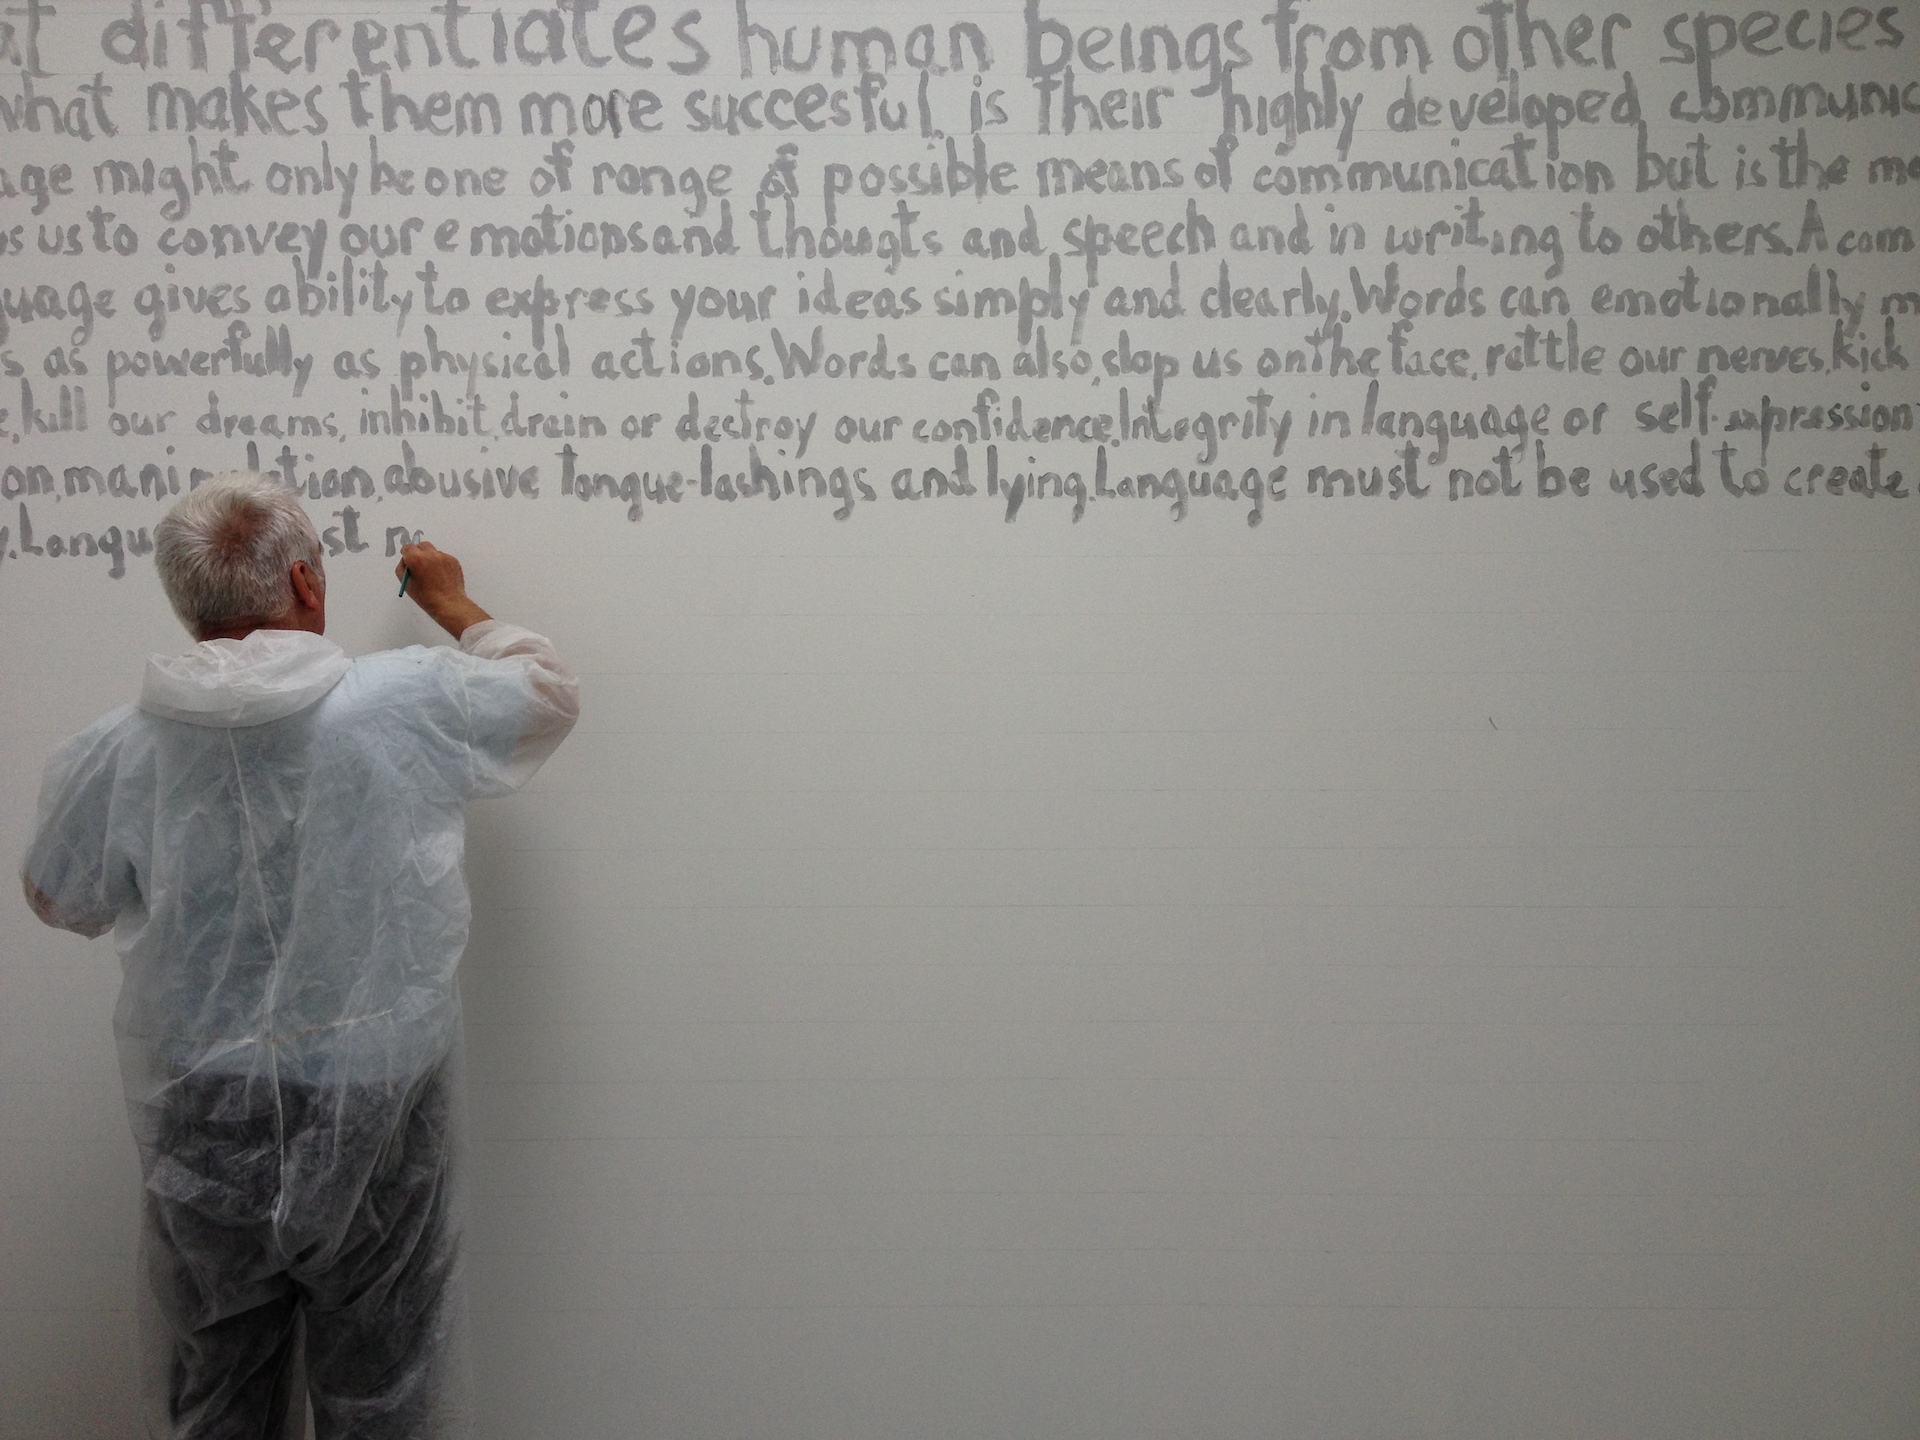 at differentiates human beings from other species
what makes them more succesful, is their highly developed communic
age might only be one of range of possible means of communication but is the me
us to convey our emotions and thougts and speech and in writing to others. A com
guage gives ability to express your ideas simply and clearly. Words can emotionally m
s as powerfully as physical actions. Words can also, slap us on the face, rattle our nerves, kick
e, kill our dreams, inhibit, drain or destroy our confidence. Integrity in language or self-expression
on, mani tion, abusive tongue-lashings and lying. Language must not be used to create
y. Langu st no